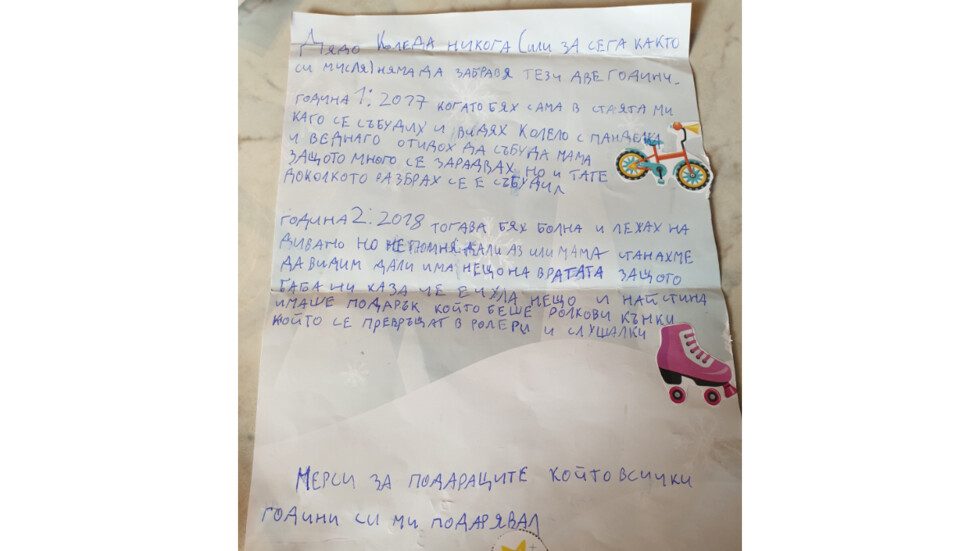 Дядо Коледа никога (или за сега както
си мисля) няма да забравя тези две години.
година 1: 2017 когато бях сама в стаята ми
каго се събудих и видях колело с пандела
и веднаго отидох да събуда мама
защото много се зарадвах, но и тате
доколкото разбрах се е събудил
година 2: 2018 тогава бях болна и лежах на
дивано но непомня дали аз или мама станахме
да видим дали има нещо на вратата защото
баба ни каза че е чула нещо и найстина
имаше подарък който беше ролкови кънки
който се превръщат в ролери и слушалки
Мерси за подаращите който всички
години си ми подарявал